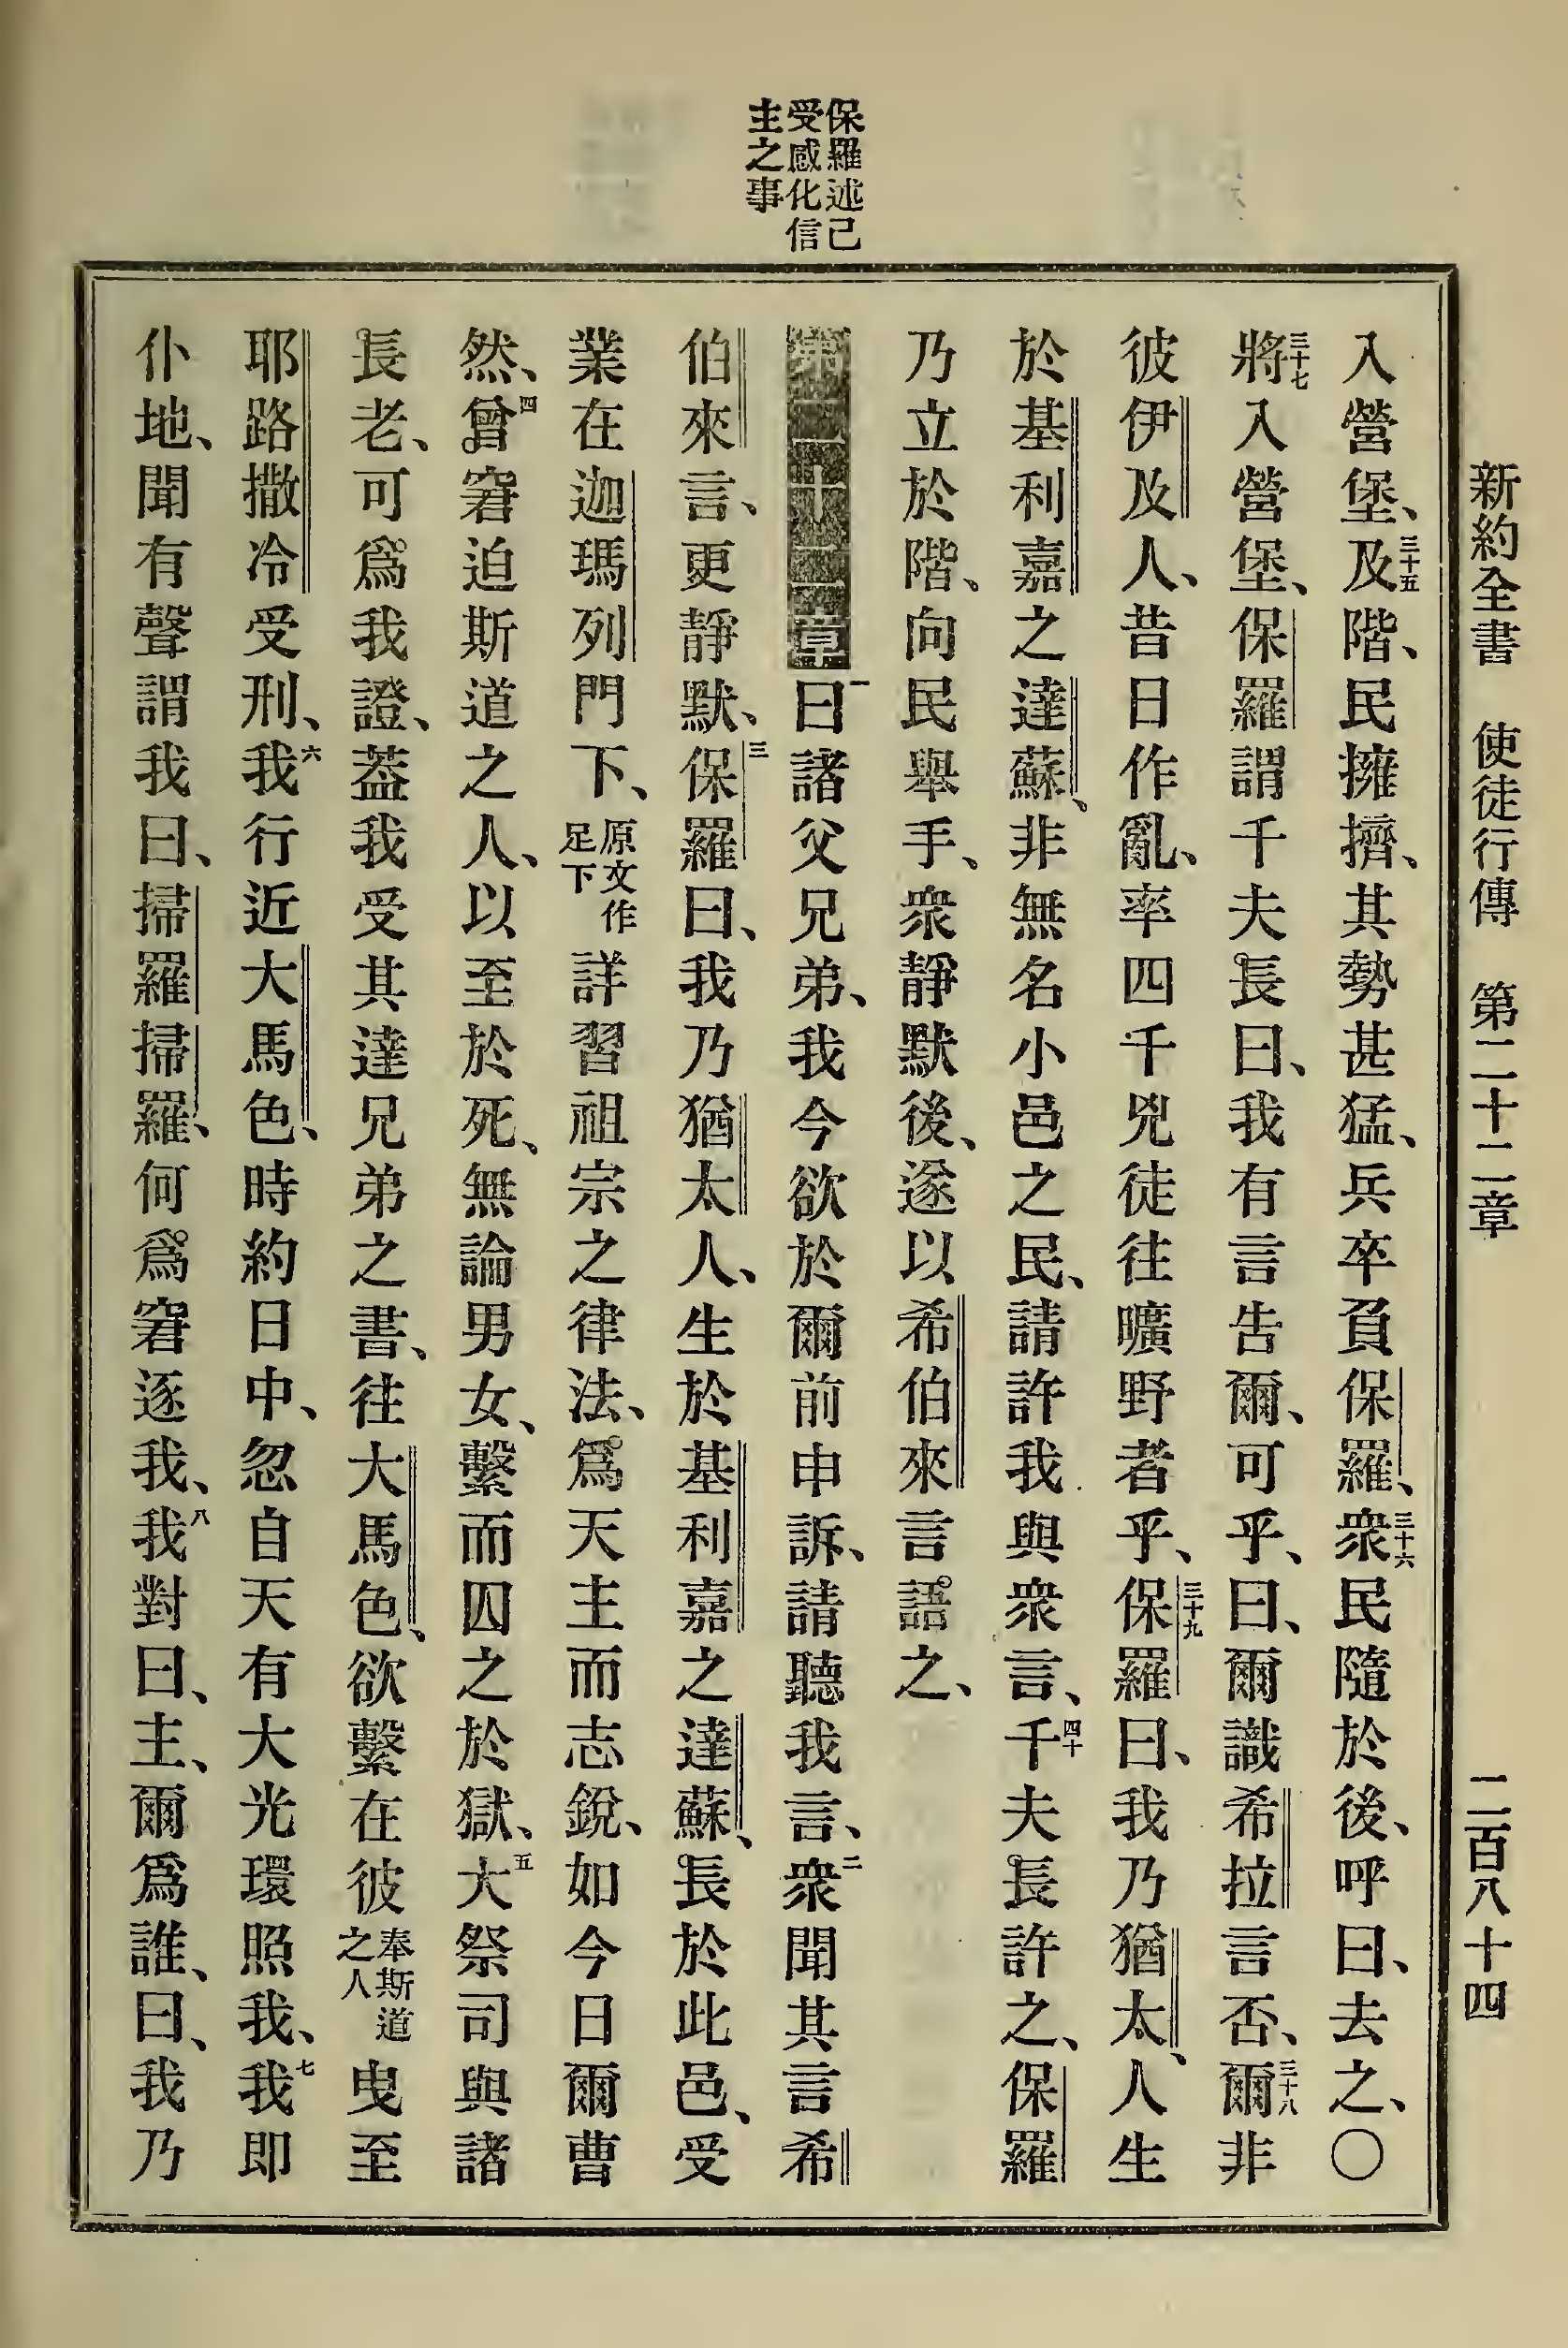 新約全書 使徒行傳 第二十二章 二百八十四
保羅述己
受感化信
主之事
入營堡、三十五及階、民擁擠、其勢甚猛、兵卒負保羅、三十六衆民隨於後、呼曰、去之、〇
三十七將入營堡、保羅謂千夫長曰、我有言告爾、可乎、曰、爾識希拉言否、三十八爾非
彼伊及人、昔日作亂、率四千兇徒往曠野者乎、三十九保羅曰、我乃猶太人、生
於基利嘉之達蘇、非無名小邑之民、請許我與衆言、四十千夫長許之、保羅
乃立於階、向民舉手、衆靜默後、遂以希伯來言語之、
第二十二章 一曰諸父兄弟、我今欲於爾前申訴、請聽我言、二衆聞其言希
伯來言、更靜默、三保羅曰、我乃猶太人、生於基利嘉之達蘇、長於此邑、受
業在迦瑪列門下、原文作足下詳習祖宗之律法、爲天主而志銳、如今日爾曹
然、四曾窘迫斯道之人、以至於死、無論男女、繫而囚之於獄、五大祭司與諸
長老、可爲我證、葢我受其達兄弟之書、往大馬色、欲繫在彼奉斯道之人曳至
耶路撒冷受刑、六我行近大馬色、時約日中、忽自天有大光環照我、七我即
仆地、聞有聲謂我曰、掃羅掃羅、何爲窘逐我、八我對曰、主、爾爲誰、曰、我乃